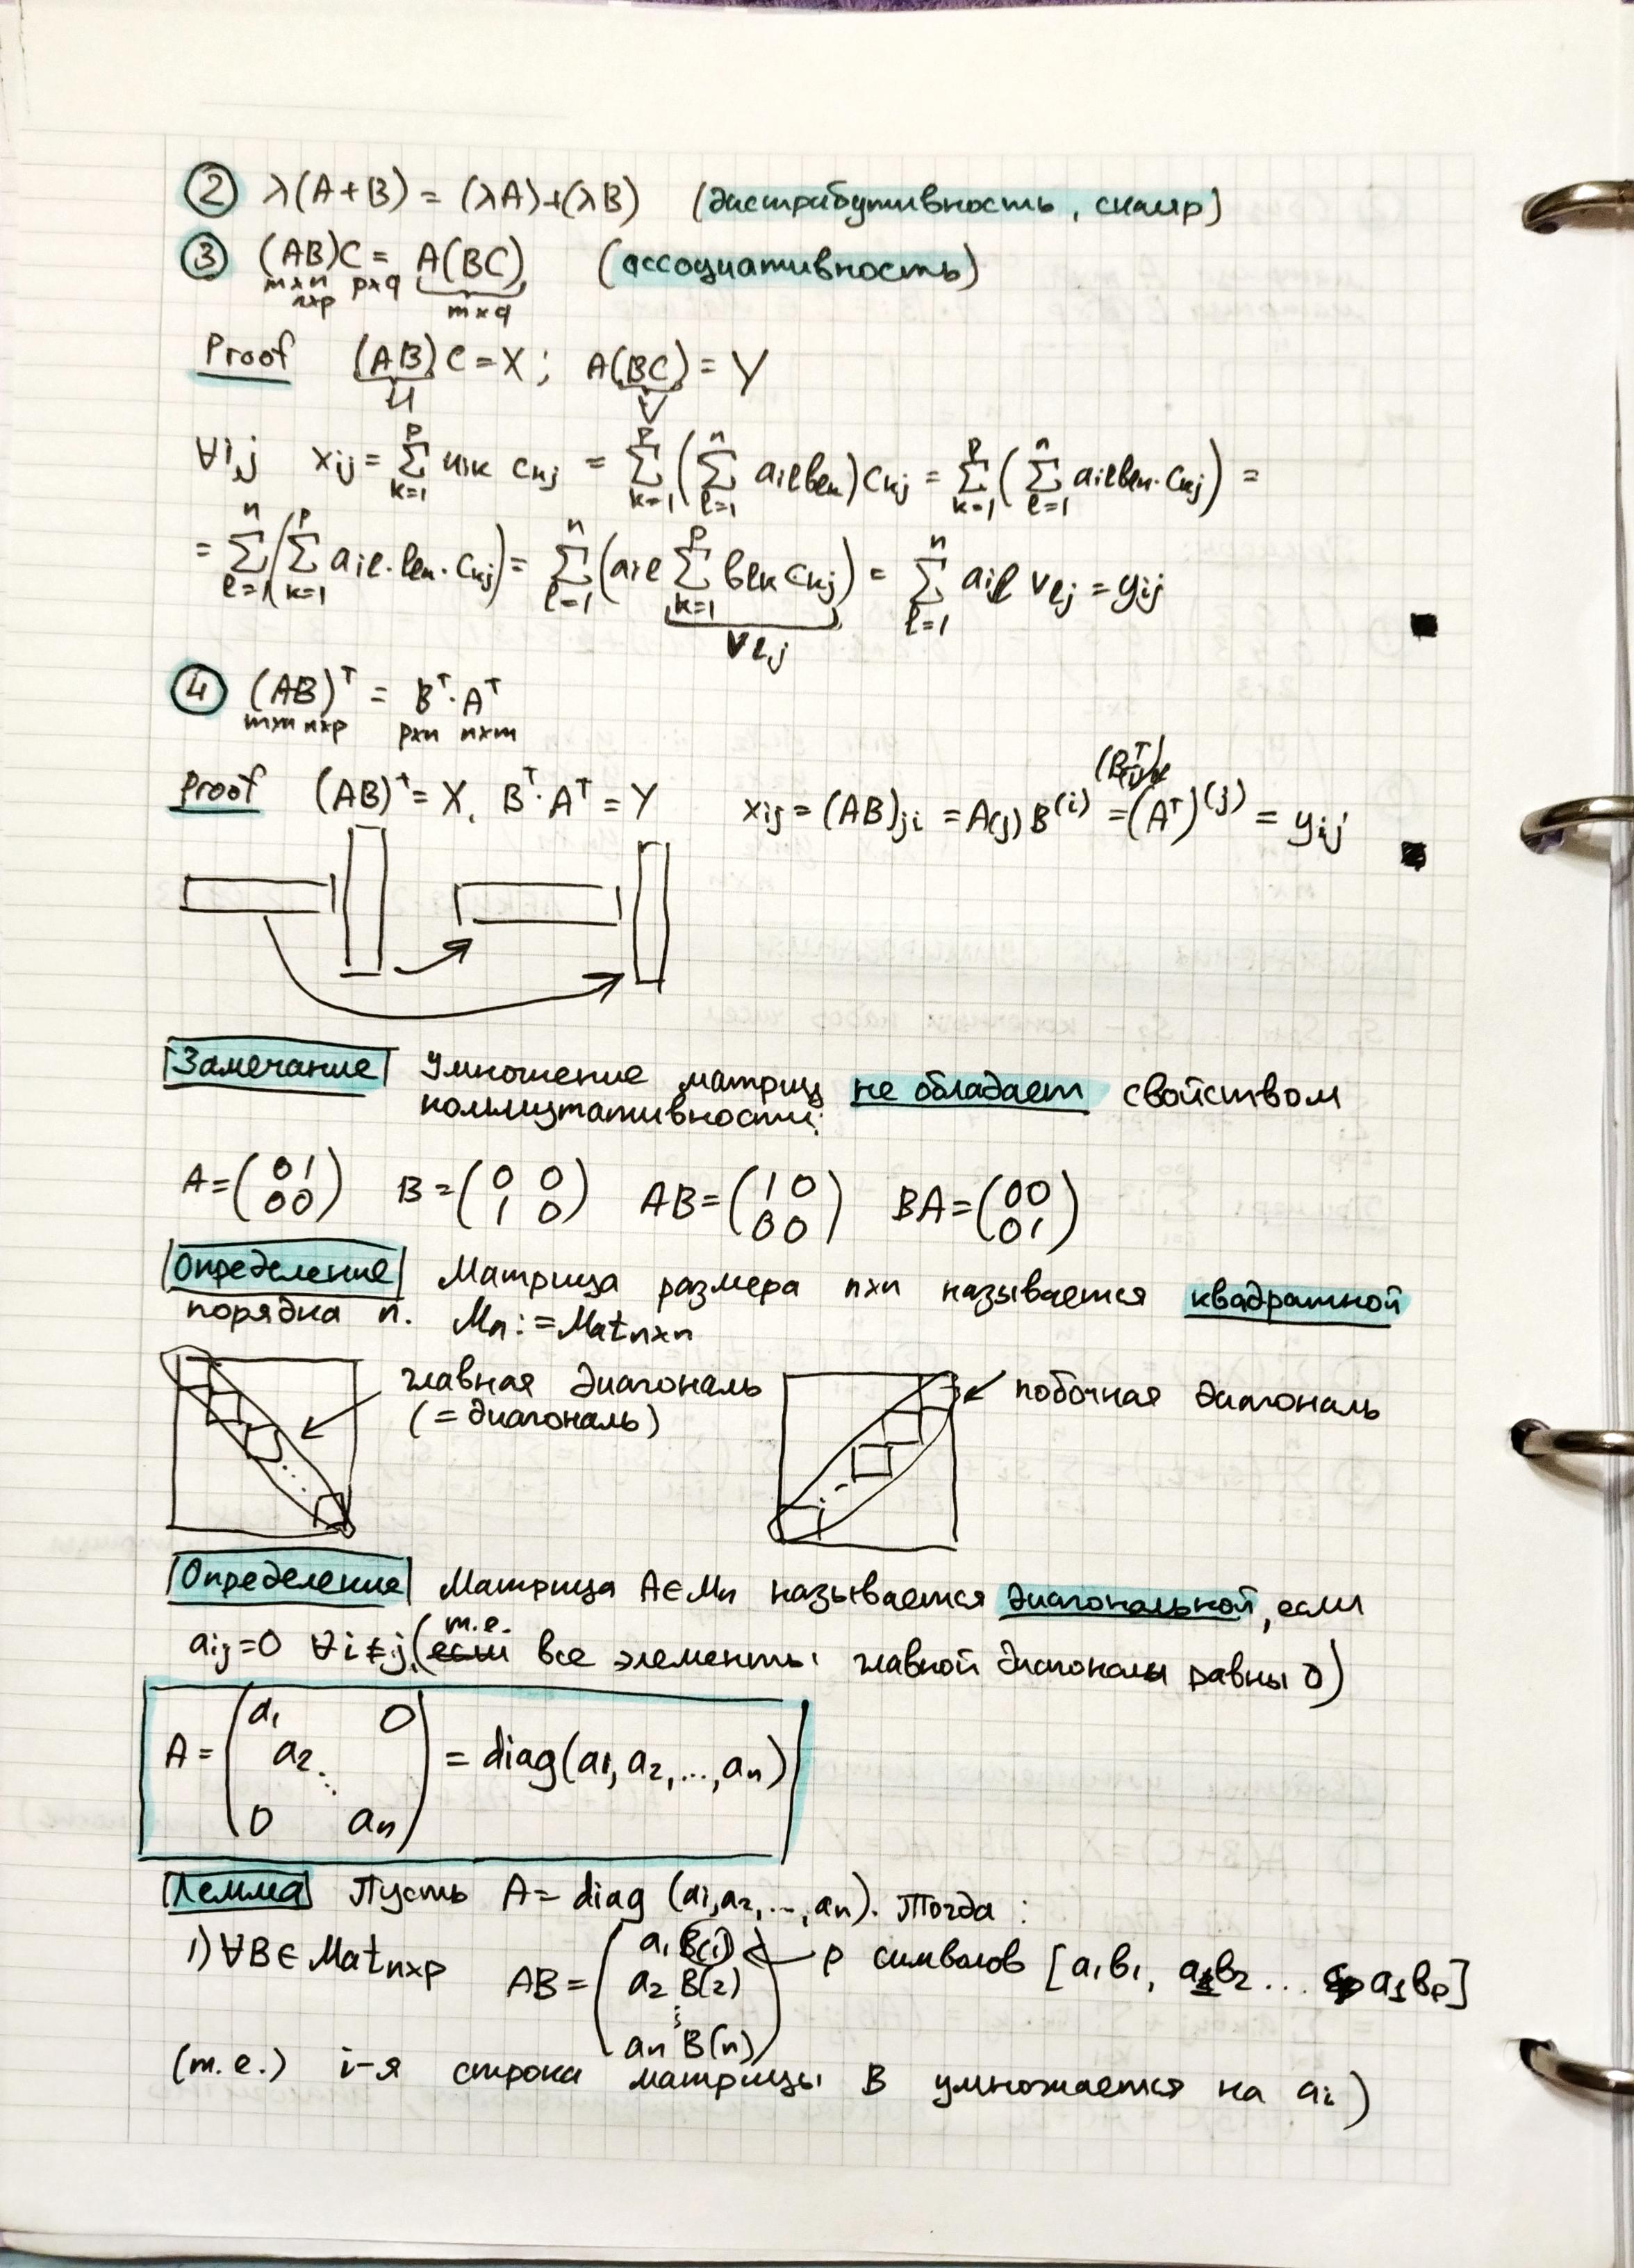 ② λ(A+B) = (λA)+(λB) (дистрибутивность, скаляр)
③ (AB)C = A(BC) (ассоциативность)
m×n p×q
n×p m×q
Proof (AB)C = X; A(BC) = Y
U V
∀i,j xij = ∑_{k=1}^{p} uik ckj = ∑_{k=1}^{p} (∑_{l=1}^{n} ail blk) ckj = ∑_{k=1}^{p} (∑_{l=1}^{n} ail blk · ckj) =
= ∑_{l=1}^{n} (∑_{k=1}^{p} ail · blk · ckj) = ∑_{l=1}^{n} (ail ∑_{k=1}^{p} blk ckj) = ∑_{l=1}^{n} ail vlj = yij ■
vlj
④ (AB)ᵀ = Bᵀ · Aᵀ
m×n n×p p×n n×m
Proof (AB)ᵀ = X, Bᵀ · Aᵀ = Y xij = (AB)ji = A(j) B^(i) = (Aᵀ)^(j) = yij ■
Замечание Умножение матриц не обладает свойством
коммутативности:
A = (0 1 B = (0 0 AB = (1 0 BA = (0 0
0 0) 1 0) 0 0) 0 1)
Определение Матрица размера n×n называется квадратной
порядка n. Mn := Matn×n
главная диагональ побочная диагональ
(= диагональ)
Определение Матрица A∈Mn называется диагональной, если
т.е.
aij=0 ∀i≠j (если все элементы главной диагонали равны 0)
a1 0
A = a2 = diag(a1, a2, ..., an)
⋱
0 an
Лемма Пусть A = diag (a1, a2, ..., an). Тогда:
1) ∀B ∈ Matn×p AB = (a1 B(1) ← p символов [a1b1, a1b2 ... a1bp]
a2 B(2)
⋮
an B(n))
(т.е.) i-я строка матрицы B умножается на ai)